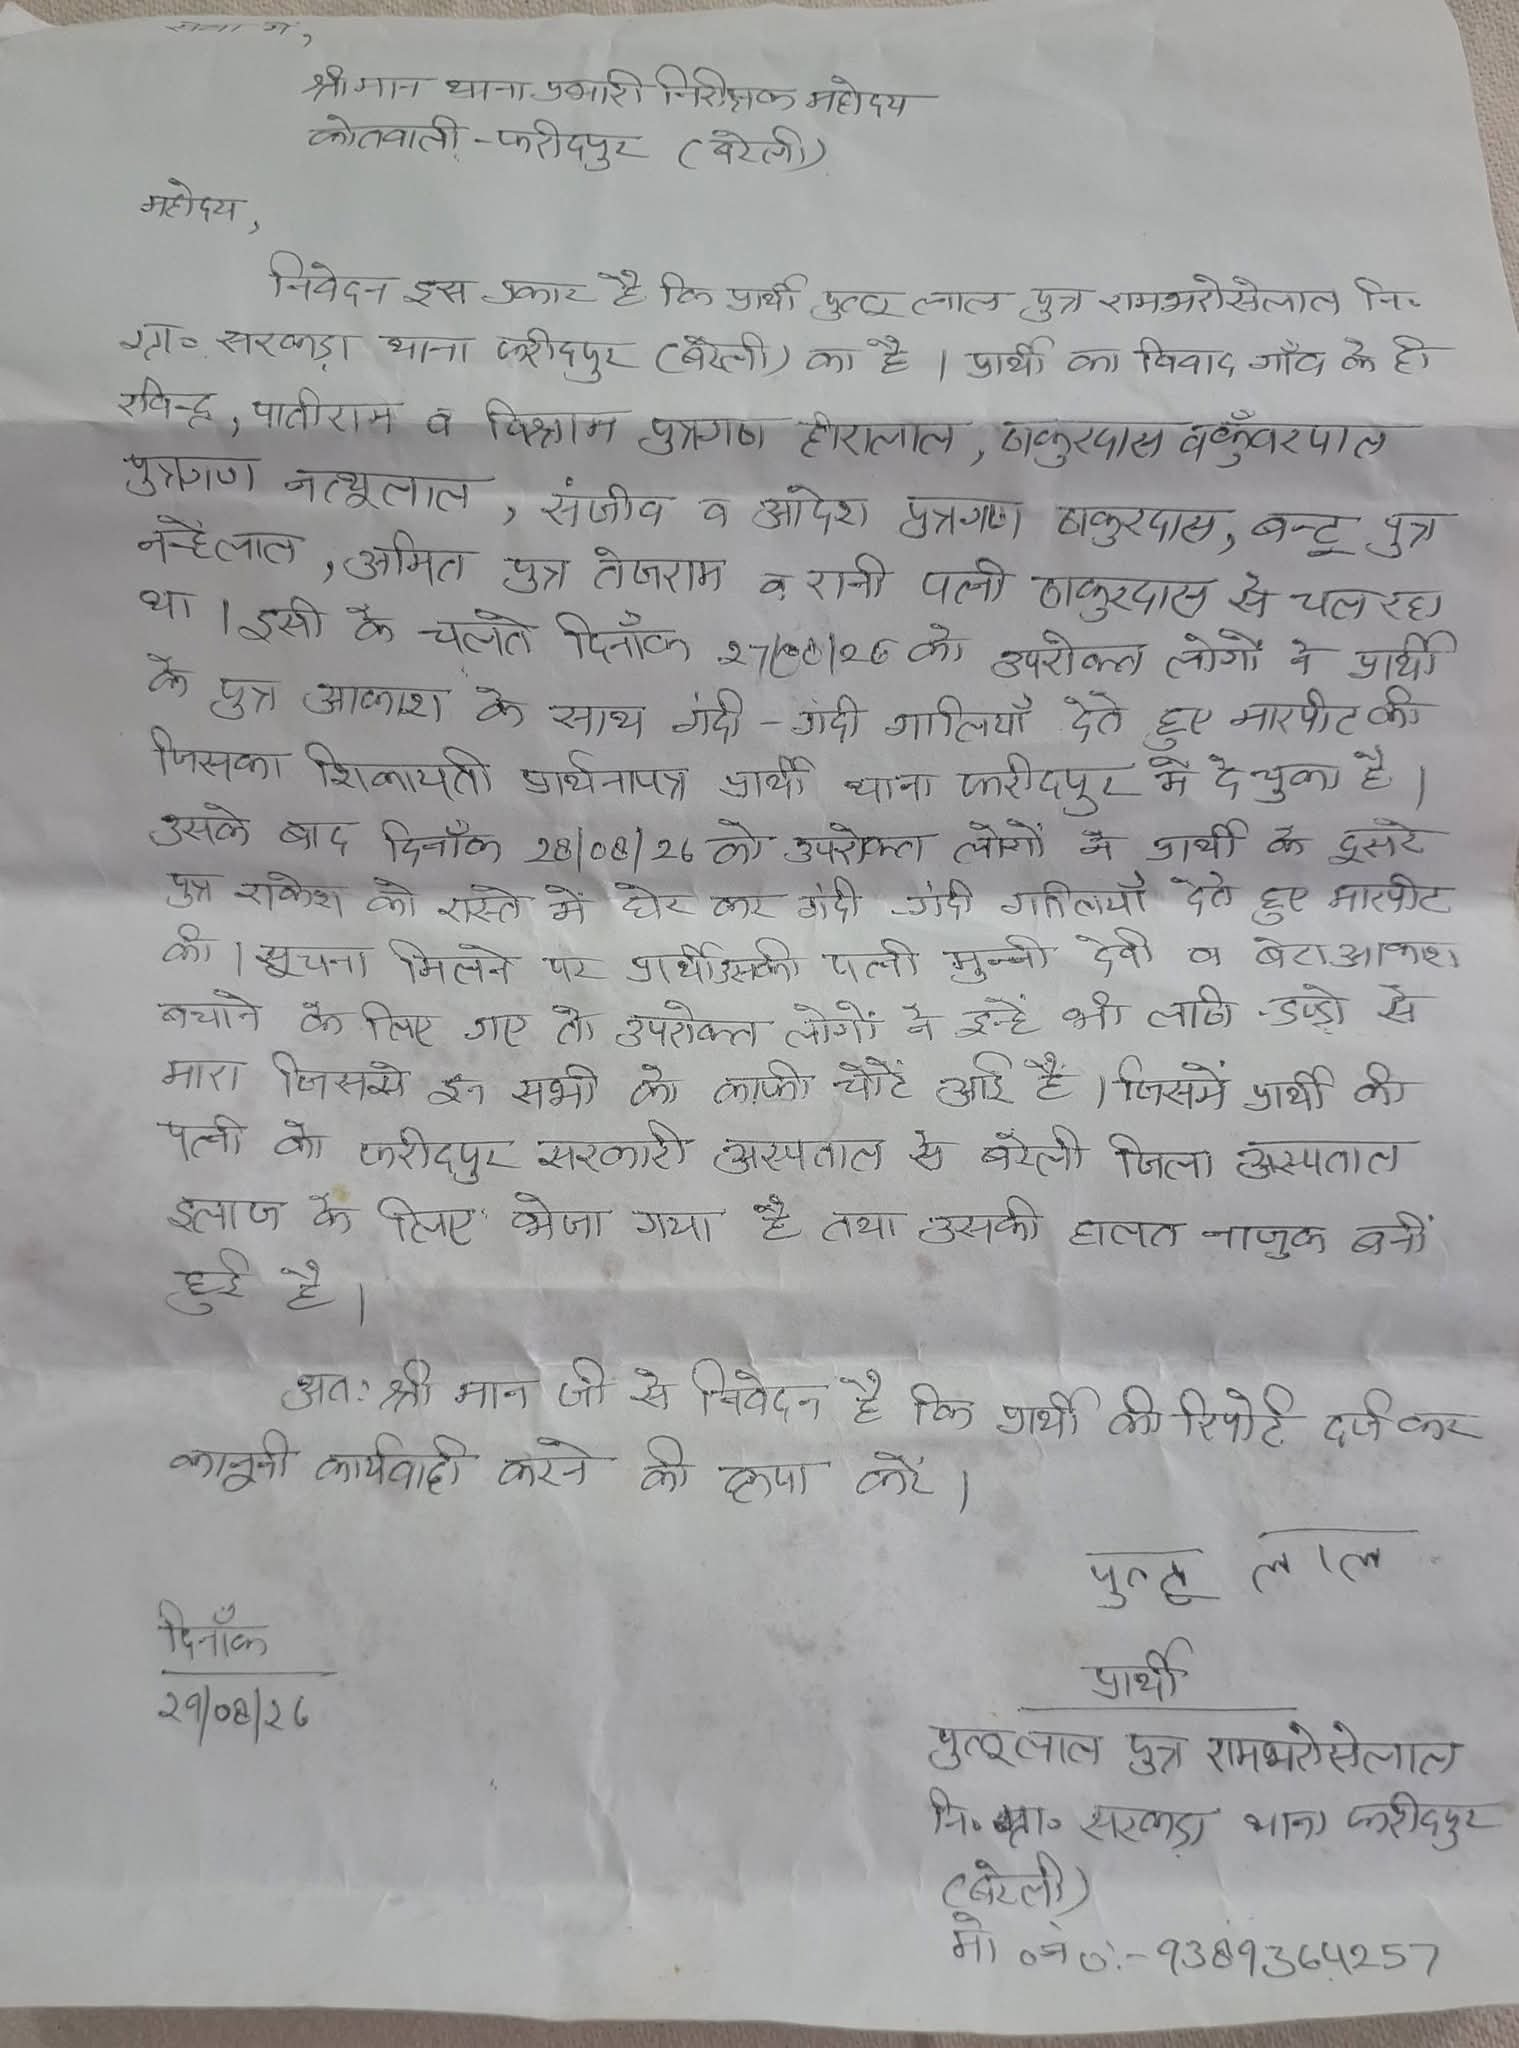 सेवा में,
श्रीमान थाना प्रभारी निरीक्षक महोदय
कोतवाली - फरीदपुर (बरेली)
महोदय,
निवेदन इस प्रकार है कि प्रार्थी पुत्तू लाल पुत्र रामभरोसेलाल नि॰
ग्रा॰ सरकड़ा थाना फरीदपुर (बरेली) का है । प्रार्थी का विवाद गाँव के ही
रविन्द्र, पातीराम व विश्राम पुत्रगण हीरालाल, ठाकुरदास व कुँवरपाल
पुत्रगण नत्थूलाल, संजीव व आदेश पुत्रगण ठाकुरदास, बन्टू पुत्र
नन्हेलाल, अमित पुत्र तेजराम व रानी पत्नी ठाकुरदास से चल रहा
था । इसी के चलते दिनाँक 27/08/26 को उपरोक्त लोगों ने प्रार्थी
के पुत्र आकाश के साथ गंदी - गंदी गालियाँ देते हुए मारपीट की
जिसका शिकायती प्रार्थनापत्र प्रार्थी थाना फरीदपुर में दे चुका है ।
उसके बाद दिनाँक 28/08/26 को उपरोक्त लोगों ने प्रार्थी के दूसरे
पुत्र राकेश को रास्ते में घेर कर गंदी - गंदी गालियाँ देते हुए मारपीट
की । सूचना मिलने पर प्रार्थी उसकी पत्नी मुन्नी देवी व बेटा आकाश
बचाने के लिए गए तो उपरोक्त लोगों ने इन्हें भी लाठी - डण्डो से
मारा जिससे इन सभी को काफी चोटें आई हैं । जिसमें प्रार्थी की
पत्नी को फरीदपुर सरकारी अस्पताल से बरेली जिला अस्पताल
इलाज के लिए भेजा गया है तथा उसकी हालत नाजुक बनीं
हुई है ।
अतः श्री मान जी से निवेदन है कि प्रार्थी की रिपोर्ट दर्ज कर
कानूनी कार्यवाही करने की कृपा करें ।
पुत्तू लाल
दिनाँक
29/08/26
प्रार्थी
पुत्तूलाल पुत्र रामभरोसेलाल
नि॰ ग्रा॰ सरकड़ा थाना फरीदपुर
(बरेली)
मो॰ न॰ :- 9389364257